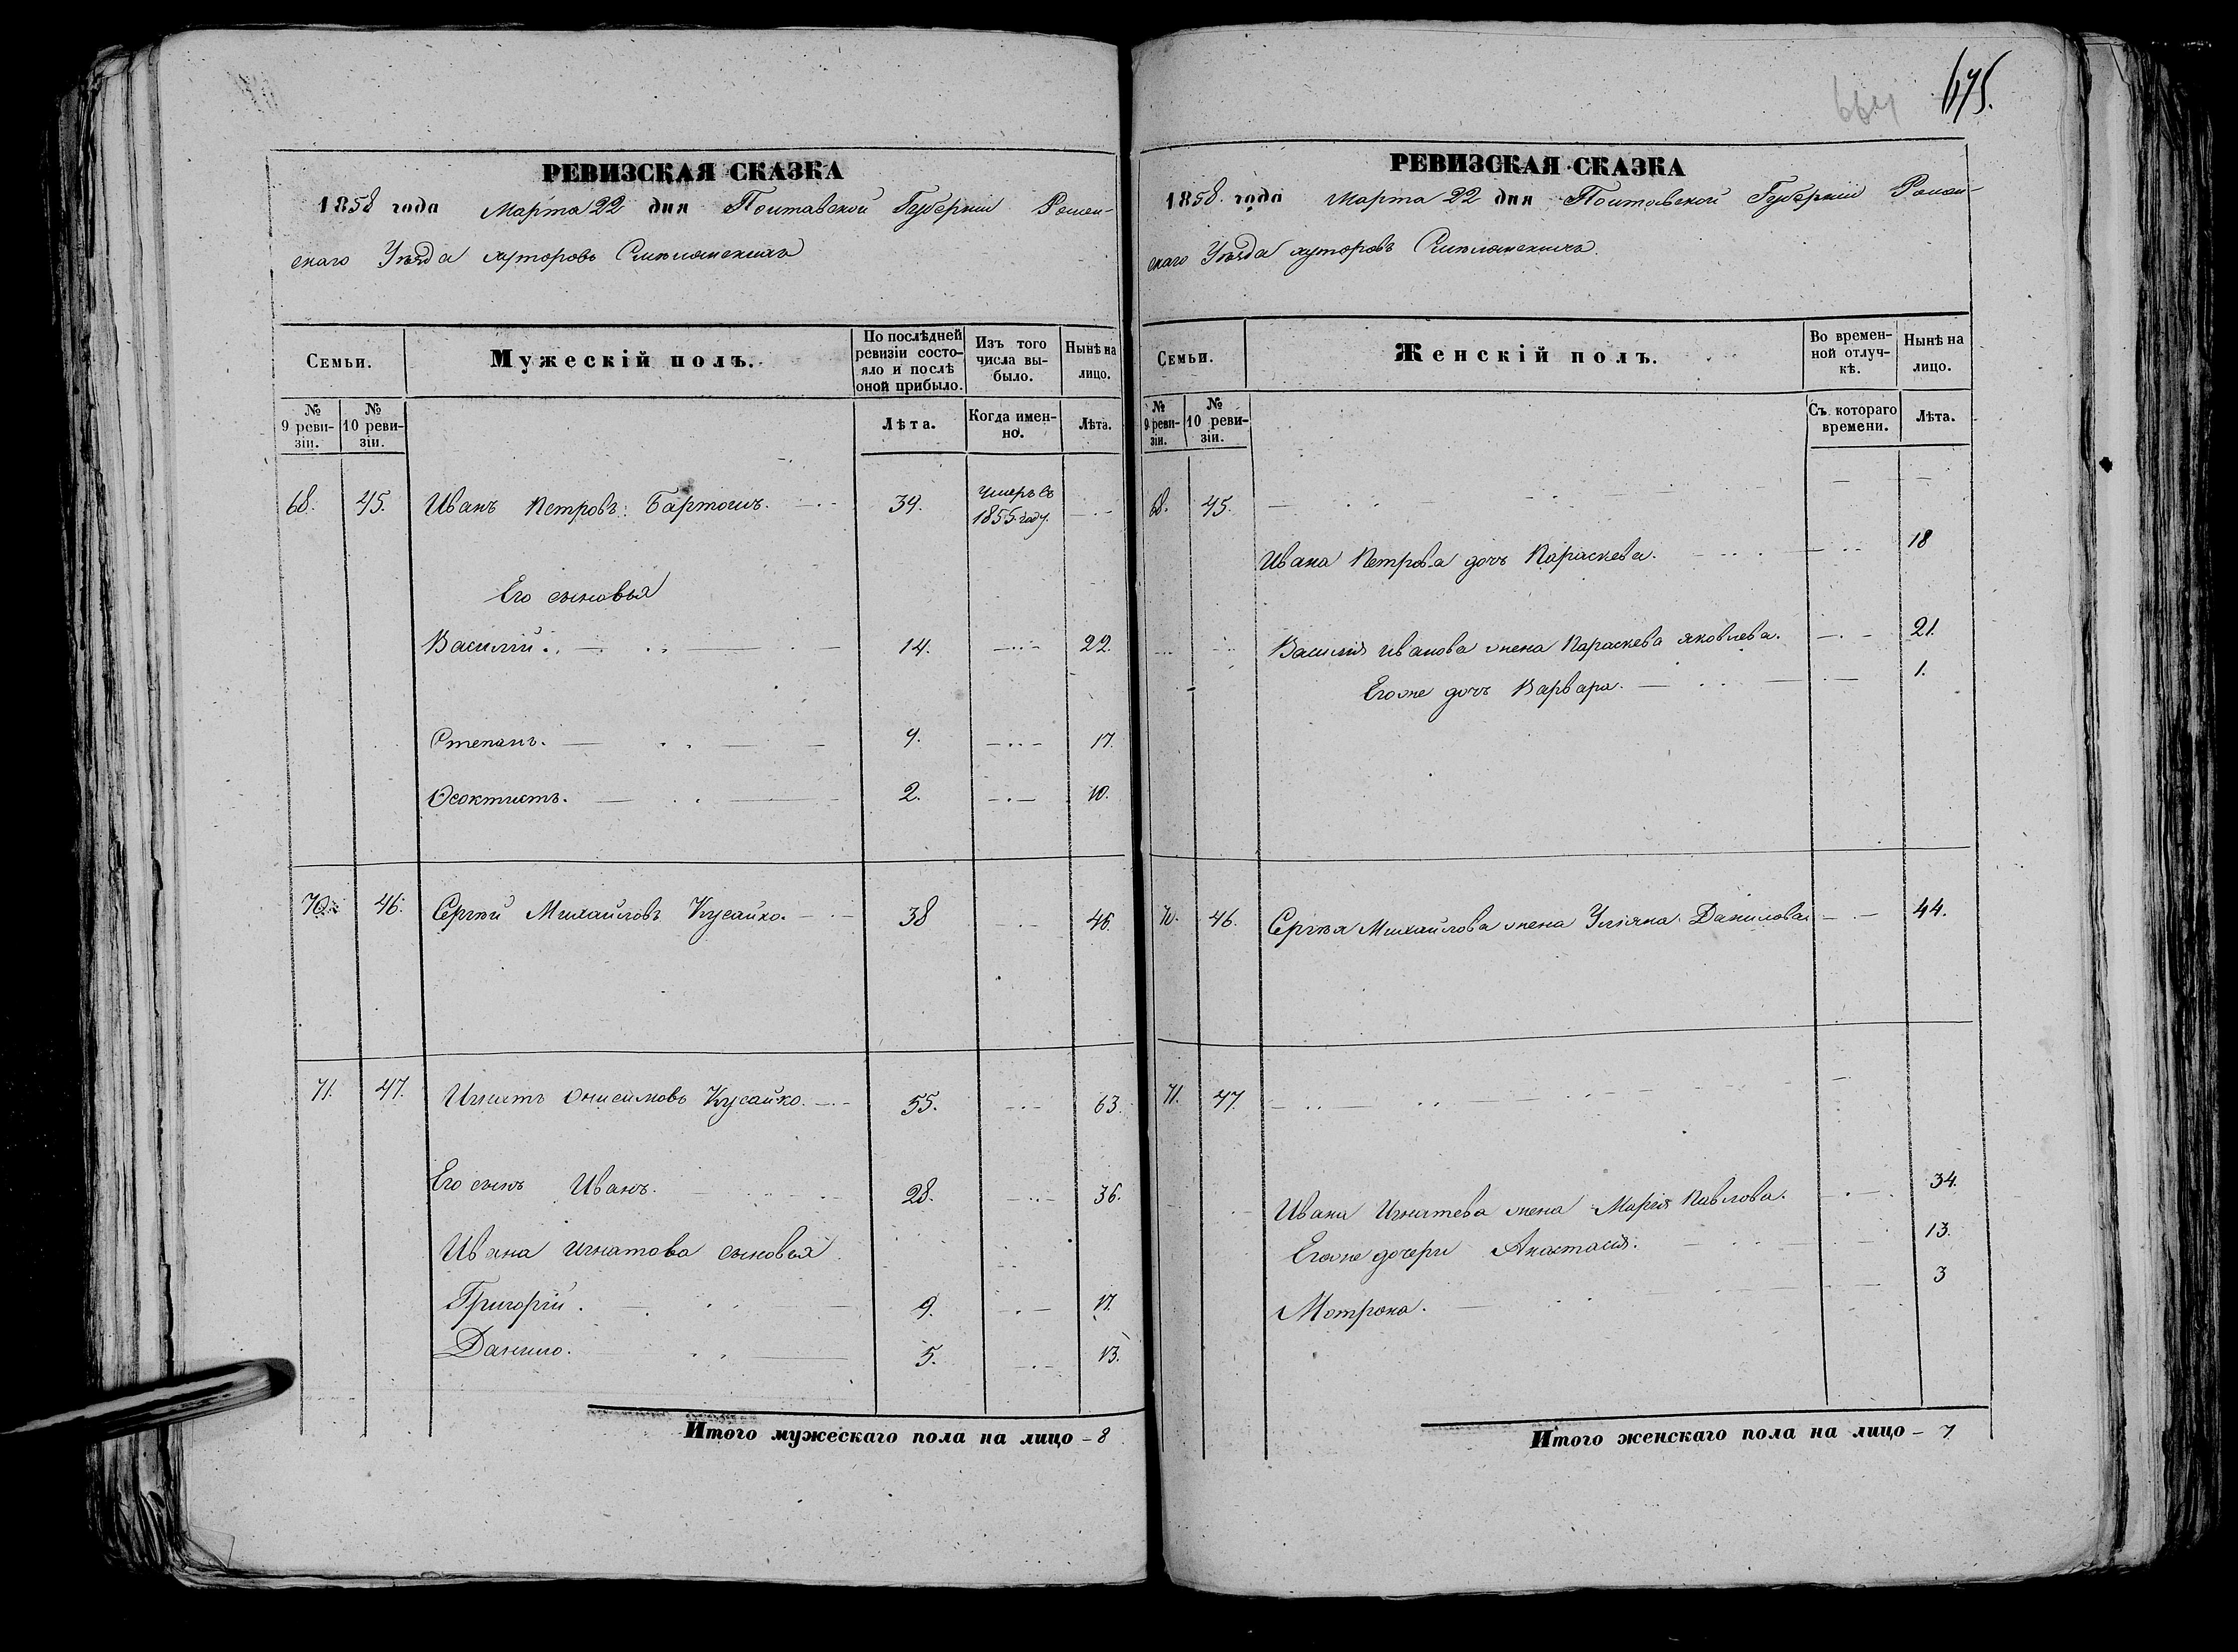 РЕВИЗСКАЯ СКАЗКА
1858 года Марта 22 дня Полтавской Губерніи Ромен-
скаго Уѣзда хуторовъ
Семьи.
Мужескій полъ.
По послѣдней ревизіи состо-яло и послѣ оной прибыло.
Изъ того числа вы-было.
Нынѣ на лицо.
№ 9 реви-зіи.
№ 10 реви-зіи.
Лѣта.
Когда имен-но.
Лѣта.
68. 45. Иванъ Петровъ Бартошъ. 34. умеръ въ 1855 году.
Его сыновья
Василій. 14. 22.
Степанъ. 9. 17.
Ѳеоктистъ. 2. 10.
70. 46. Сергѣй Михайловъ Кусайко. 38 46.
71. 47. Игнатъ Онисимовъ Кусайко. 55. 63.
Его сынъ Иванъ. 28. 36.
Ивана Игнатова сыновья
Григорій. 9. 17.
Данило. 5. 13.
Итого мужескаго пола на лицо - 8
675.
664
РЕВИЗСКАЯ СКАЗКА
1858 года Марта 22 дня Полтавской Губерніи Ромен-
скаго Уѣзда хуторовъ
Семьи.
Женскій полъ.
Во времен-ной отлуч-кѣ.
Нынѣ на лицо.
№ 9 реви-зіи.
№ 10 реви-зіи.
Съ котораго времени.
Лѣта.
68. 45.
Ивана Петрова дочь Параскева. 18
Василія Иванова жена Параскева Яковлева. 21.
Егоже дочь Варвара. 1.
70. 46. Сергѣя Михайлова жена Уліяна Данилова 44.
71. 47.
Ивана Игнатева жена Марія Павлова. 34.
Егоже дочери Анастасія. 13.
Мотрона. 3
Итого женскаго пола на лицо - 7